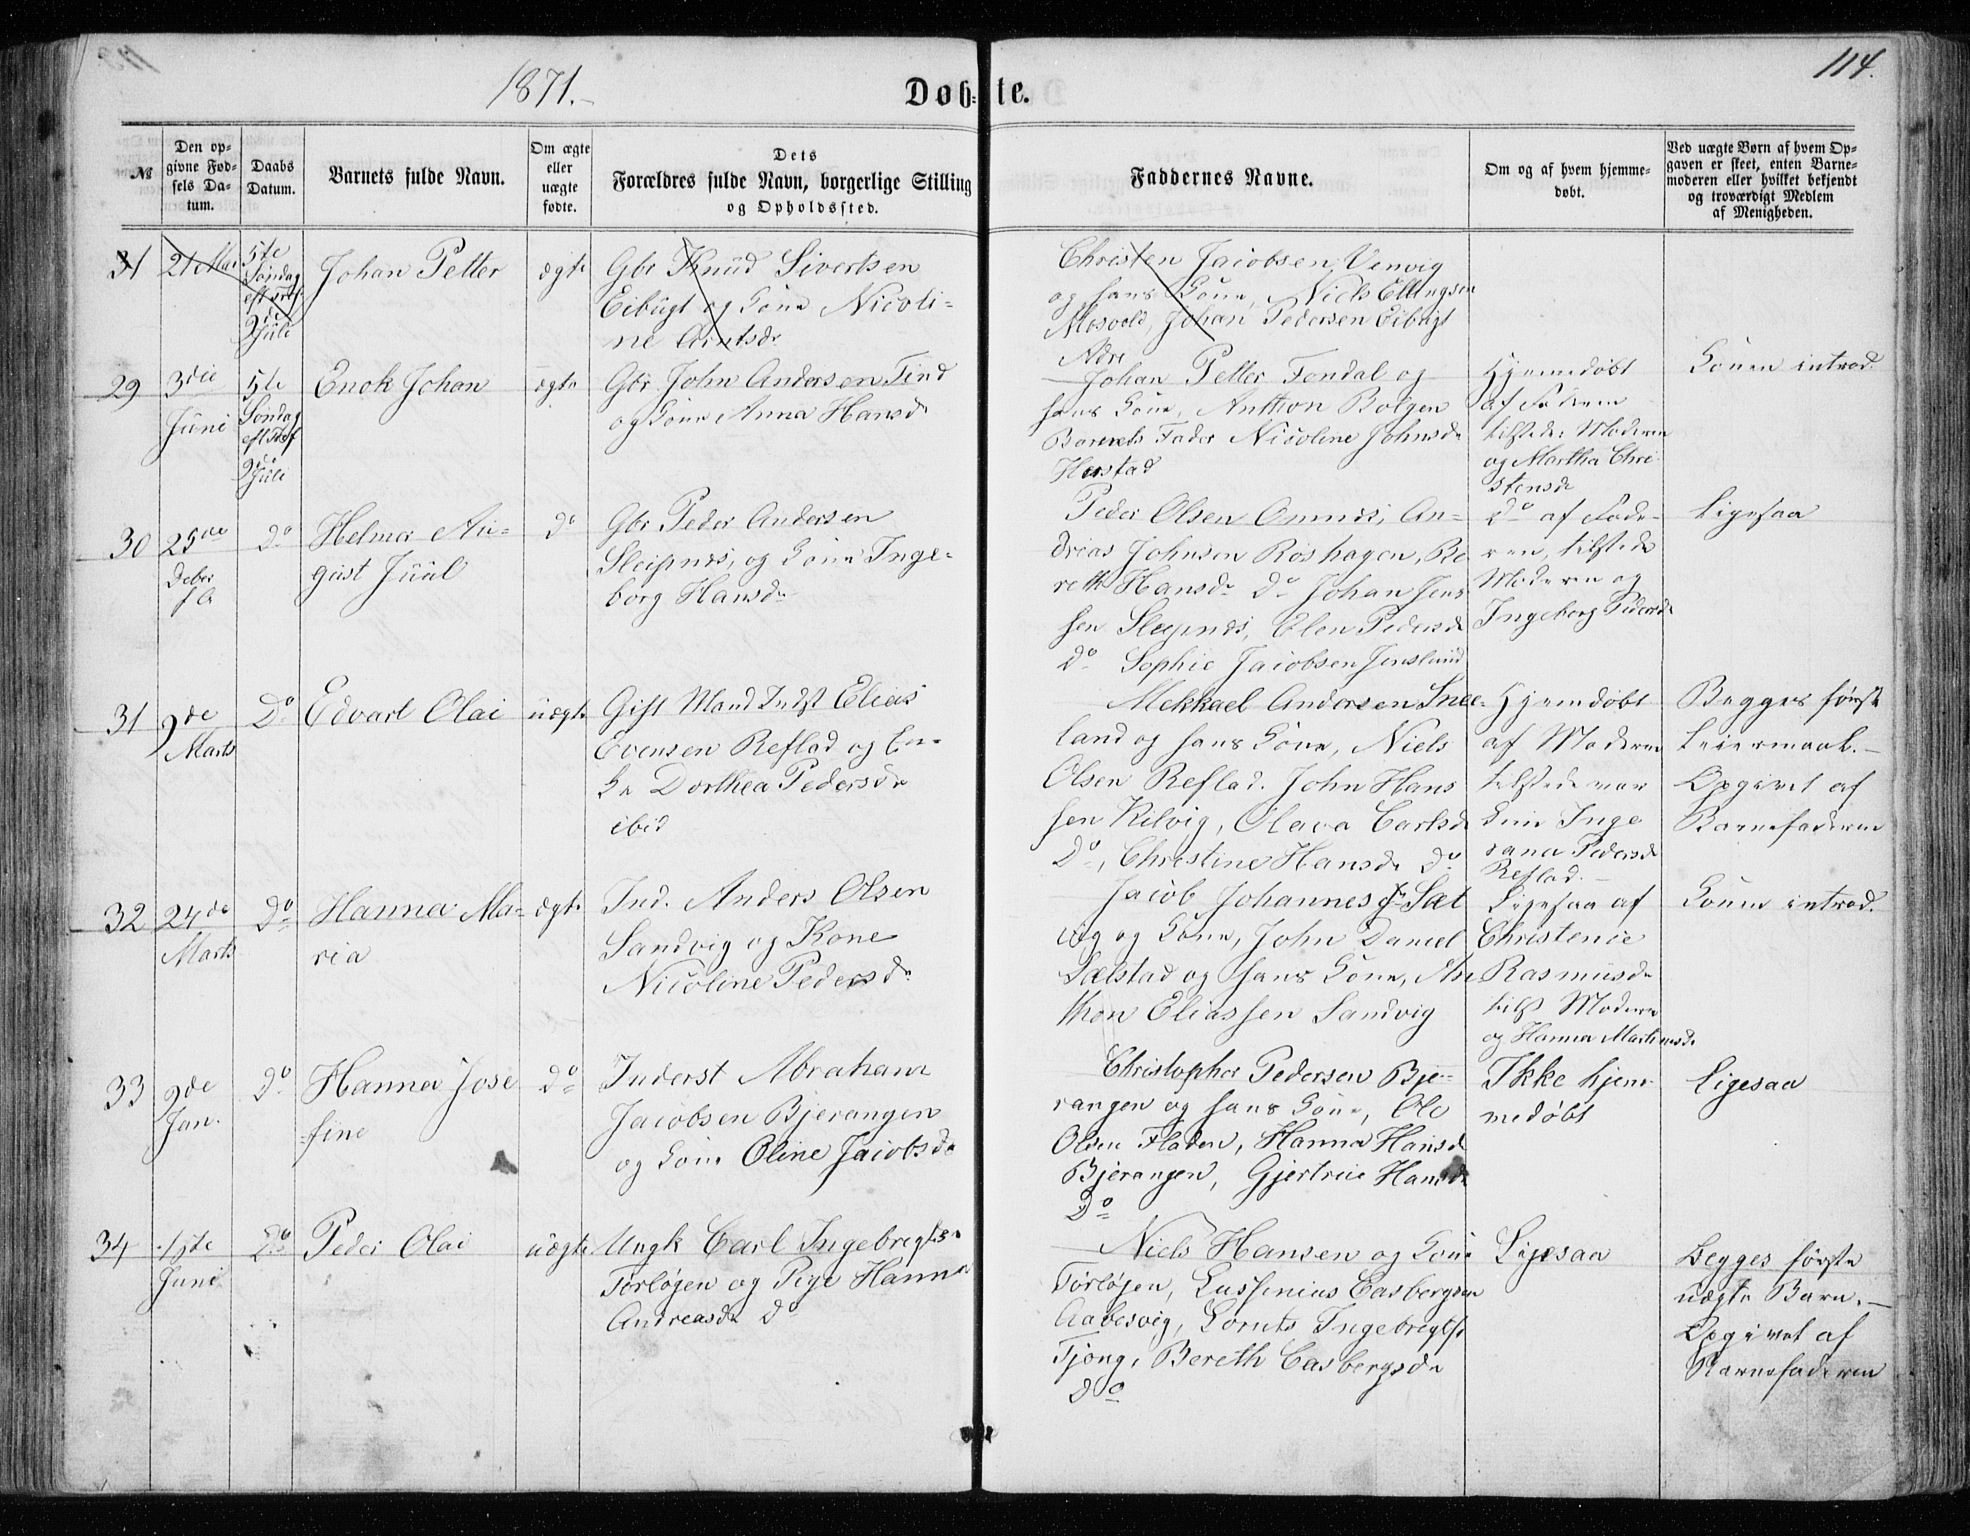 1871.
Døbte.
114.
№
Den opgivne Fødsels Datum.
Daabs Datum.
Barnets fulde Navn.
Om ægte eller uægte fødte.
Dets
Forældres fulde Navn, borgerlige Stilling
og Opholdssted.
Faddernes Navne.
Om og af hvem hjemmedøbt.
Ved uægte Børn af hvem Opgaven er skeet, enten Barnemoderen eller hvilket bekjendt og troværdigt Medlem af Menigheden.
31
21 Mai
5te
Søndag
eft Tref
9de
Juli
Johan Petter
ægte
Gbr Knud Sivertsen
Eibugt og Kone Nicoli-
ne Arntsdr
Christen Jacobsen Venvig
og hans Kone, Niels Ellingsen
Mosvold, Johan Pedersen Eibugt
Ndre
29
3die
Juni
5te
Søndag
eft Tref
9de
Juli
Enok Johan
ægte
Gbr John Andersen Find
og Kone Anna Hansdr
Johan Petter Fondal og
hans Kone, Anthon Bolgen
Barnets Fader Nicoline Johnsdr
Hestad
Hjemmedøbt
af Faderen
tilstede: Moderen
og Martha Chri-
stensdr
Konen introd.
30
25de
Deber
f A
Do
Helmer Au-
gust Juul
Do
Gbr Peder Andersen
Sleipnes, og Kone Inge-
borg Hansdr
Peder Olsen Onnes, An-
drias Johnsen Røshagen, Be
reth Hansdr Do Johan Jens
sen Sleipnes, Elen Pedersdr
Do Sophie Jacobsen Jenslund
Do af Fade-
ren, tilstede
Moderen og
Ingeborg Pedersdr
Ligesaa
31
9de
Marts
Do
Edvart Olai
uægte
Gift Mand Indst Elias
Evensen Reflad og En-
ke Dorthea Pedersdr
ibid
Mekkael Andersen Snee-
land og hans Kone, Niels
Olsen Reflad. John Hans
sen Kilvig, Olava Carlsdr
Do, Christine Hansdr Do
Hjemdøbt
af Moderen
tilstede var
Kun Inge
rana Pedersdr
Reflad.
Begges første
Leiermaal.
Opgivet af
Barnefaderen
32
24de
Marts
Do
Hanna Ma-
ria
ægte
Ind. Anders Olsen
Sandvig og Kone
Nicoline Pedersdr
Jacob Johannes Sæl
vig og Kone, John Daniel
Sælstad og hans Kone, An
thon Eliassen Sandvig
Ligesaa af
Christence
Rasmusdr
tilst Moderen
og Hanna Martinusdr
Konen introd.
33
9de
Jan.
Do
Hanna Jose
fine
Do
Inderst Abraham
Jacobsen Bjerangen
og Kone Oline Jacobsdr
Christopher Pedersen Bje-
rangen og hans Kone, Ole
Olsen Fladen, Hanna Hansdr
Bjerangen, Gjertrue Hansdr
Do
Ikke hjem-
medøbt
Ligesaa
34
1ste
Juni
Do
Peder Olai
uægte
Ungk Carl Ingebregtsen
Forløgen og Pige Hanna
Andreasdr Do
Niels Hansen og Kone
Forløgen, Lussinius Casbergsen
Aabesvig, Cornts Ingebregtsen
Tjong, Bereth Casbergsdr
Do
Ligesaa
Begges første
uægte Barn.
Opgivet af
Barnefaderen